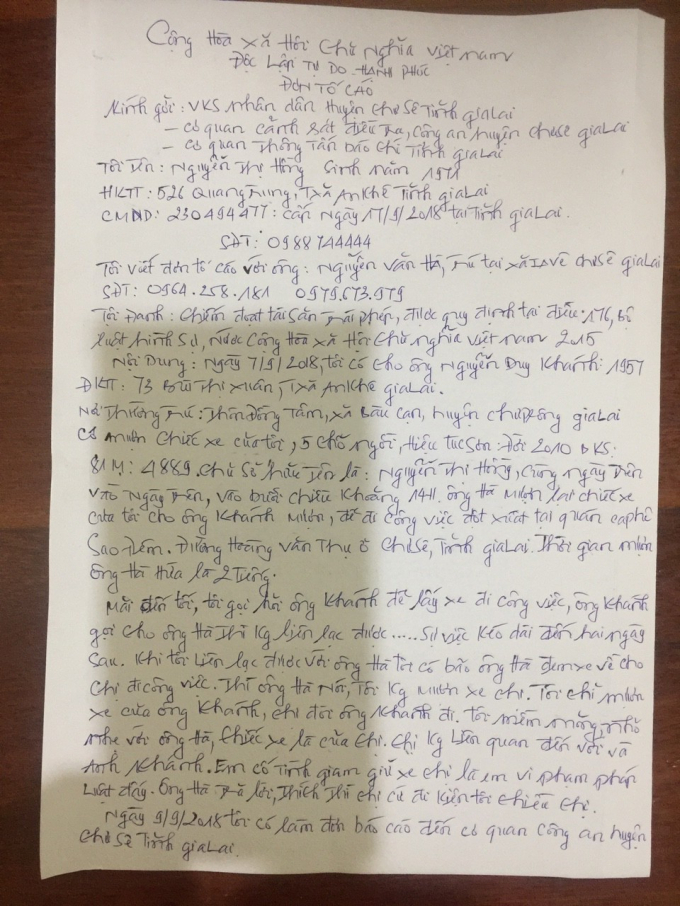 Cộng Hòa xã Hội Chủ Nghĩa việt nam
Độc Lập Tự Do Hạnh Phúc
ĐƠN TỐ CÁO
Kính gởi: VKS nhân dân Huyện chư sê Tỉnh gialai
- cơ quan cảnh sát điều tra, công an huyện chư sê gialai
- cơ quan Thông Tấn báo chí Tỉnh gialai
Tôi Tên: Nguyễn Thị Hồng Sinh năm 1971
HKTT: 526 Quang Trung, Txã An Khê Tỉnh gialai
CMND: 230494477: cấp Ngày 17/9/2018 tại Tỉnh gialai.
SĐT: 0988744444
Tôi viết đơn tố cáo với ông: Nguyễn văn Hà, Trú tại xã Iavê chư sê gialai
SĐT: 0964.258.181 0979.673.979
Tội Danh: chiếm đoạt tài sản Trái phép, được quy định tại điều 176, Bộ
luật hình sự, nước cộng Hòa xã Hội chủ nghĩa việt nam 2015
Nội Dung: Ngày 7/9/2018, tôi có cho ông Nguyễn Duy Khánh: 1957
ĐKTT: 73 Bùi Thị xuân, Txã An Khê gialai.
Nơi Thường Trú: Thôn Đồng Tâm, xã Bàu cạn, huyện chư prông gialai
có mượn chiếc xe của tôi, 5 chỗ ngồi, Hiệu tucson: Đời 2010 BKS:
81M: 4889. chủ sở hữu Tên là: Nguyễn Thị Hồng, cũng ngày Trên
vào Ngày Trên, vào buổi chiều khoảng 14H. ông Hà Mượn lại chiếc xe
của tôi cho ông Khánh mượn, để đi công việc đột xuất tại quán caphê
Sao Đêm. Đường Hoàng văn Thụ ở chư sê, Tỉnh gialai. Thời gian mượn
ông Hà Hứa là 2 Tiếng.
Mãi đến tối, tôi gọi hỏi ông Khánh để lấy xe đi công việc, ông Khánh
gọi cho ông Hà Thì Kg liên lạc được..... Sự việc kéo dài đến hai ngày
sau. Khi tôi Liên lạc được với ông Hà tôi có bảo ông Hà đem xe về cho
chị đi công việc. Thì ông Hà Nói, Tôi Kg Mượn xe chị. Tôi chỉ mượn
xe của ông Khánh, chị đòi ông Khánh đi. tôi mềm mỏng, nhỏ
nhẹ với ông Hà, chiếc xe là của chị. chị Kg Liên quan đến với và
Anh Khánh. Em cố tình giam giữ xe chị là em vi phạm pháp
Luật đấy. ông Hà Trả lời, Thích Thì chị cứ đi kiện tôi chiều chị.
Ngày 9/9/2018 tôi có làm đơn báo cáo đến cơ quan công an huyện
chư sê Tỉnh gialai.